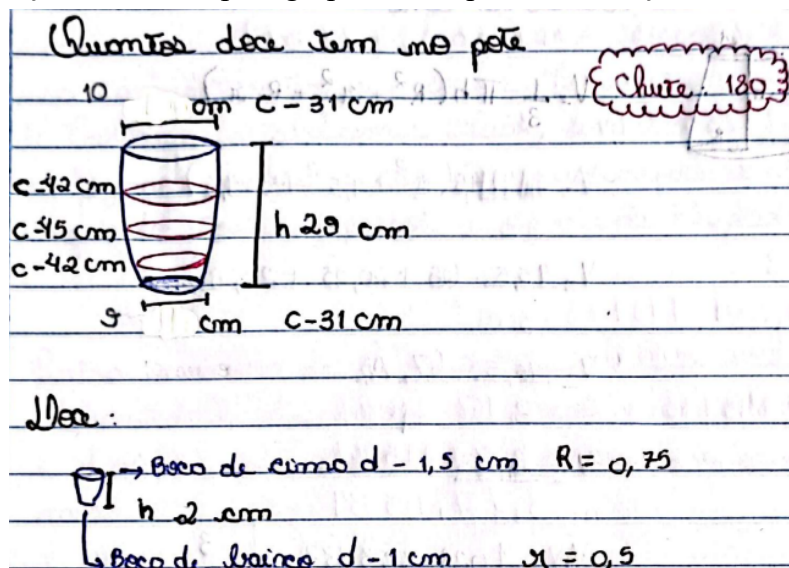 Quantos doce tem no pote
Chute: 180
10 cm C-31 cm
C-42 cm
C-45 cm
C-42 cm
h 29 cm
9 cm C-31 cm
Doce:
→ Boca de cima d - 1,5 cm R = 0,75
h 2 cm
↳ Boca de baixo d - 1 cm r = 0,5